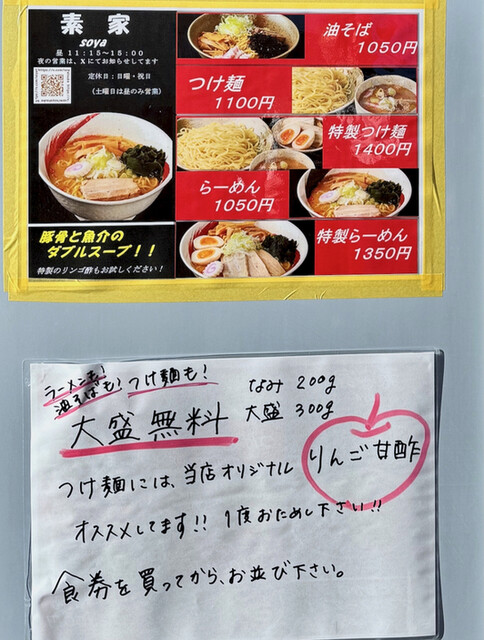 素家
soya
昼 11:15～15:00
夜の営業は、Xにてお知らせしてます
定休日:日曜・祝日
(土曜日は昼のみ営業)
油そば
1050円
つけ麺
1100円
特製つけ麺
1400円
らーめん
1050円
特製らーめん
1350円
豚骨と魚介の
ダブルスープ!!
特製のリンゴ酢もお試しください!
ラーメンも!
油そばも! つけ麺も!
大盛無料
なみ 200g
大盛 300g
つけ麺には、当店オリジナル りんご甘酢
オススメしてます!! 1度おためし下さい!!
食券を買ってから、お並び下さい。